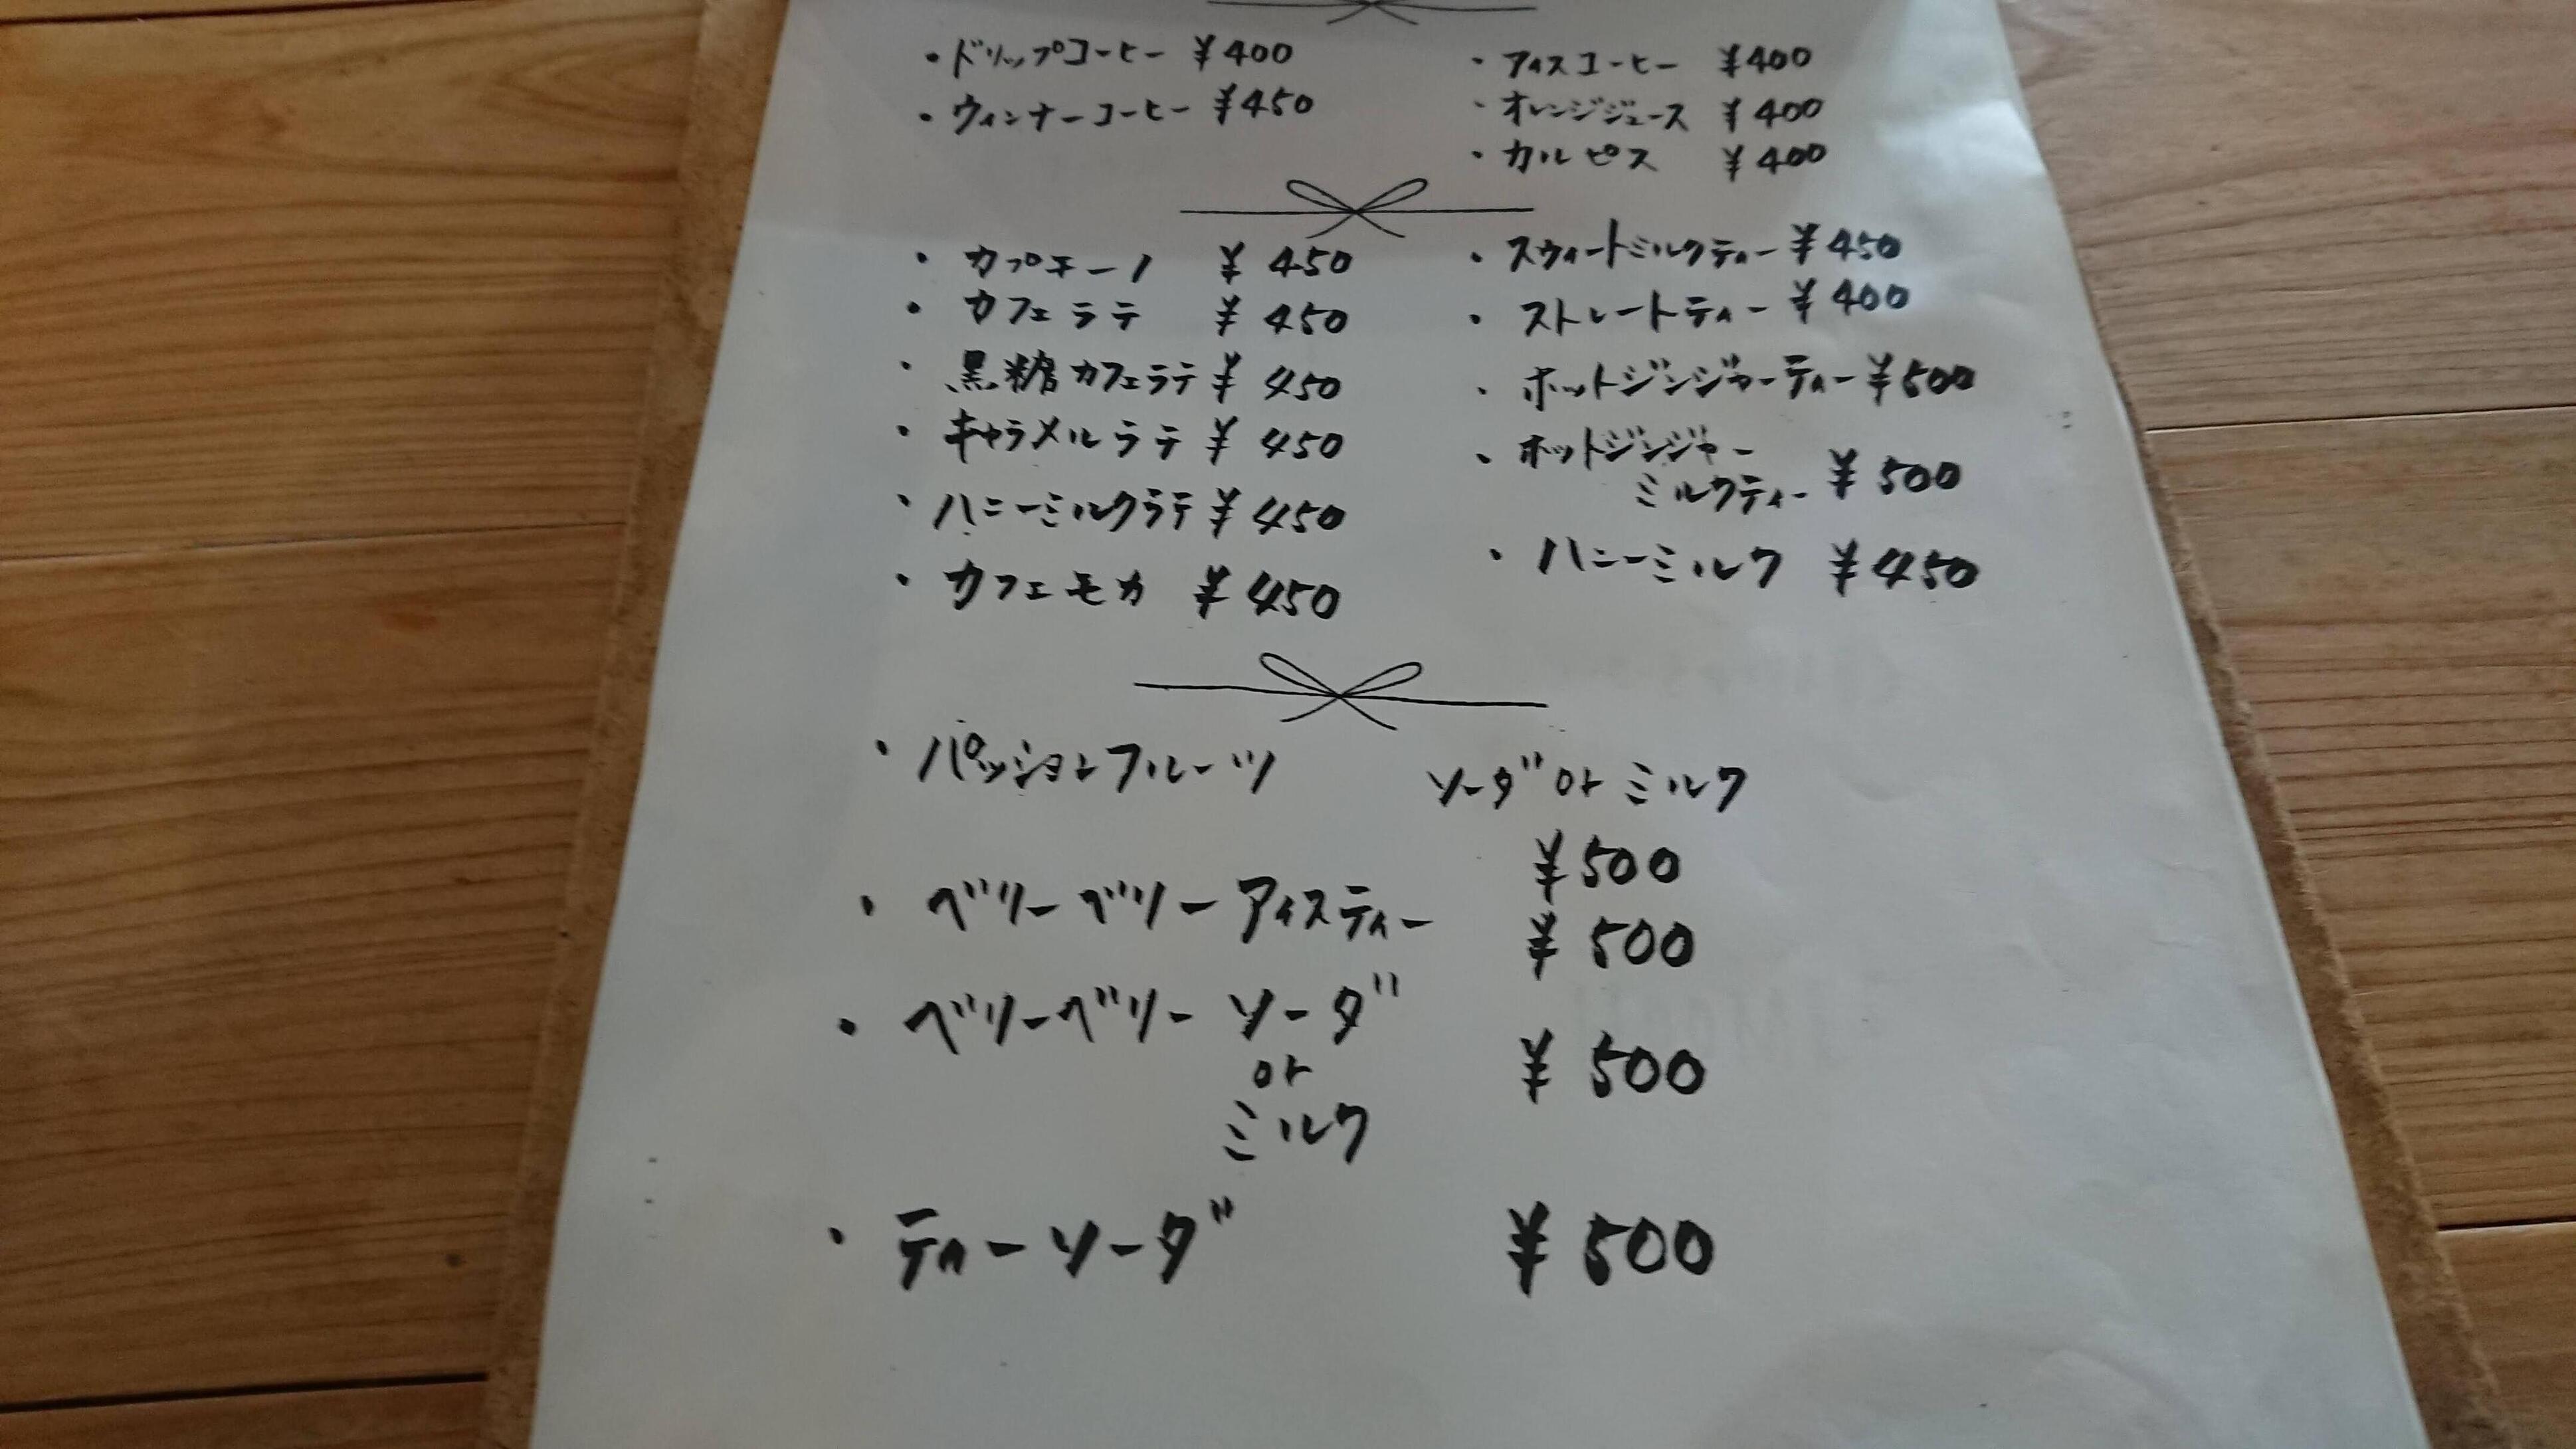 ・ドリップコーヒー ¥400
・ウィンナーコーヒー ¥450
・アイスコーヒー ¥400
・オレンジジュース ¥400
・カルピス ¥400
・カプチーノ ¥450
・カフェラテ ¥450
・黒糖カフェラテ ¥450
・キャラメルラテ ¥450
・ハニーミルクラテ ¥450
・カフェモカ ¥450
・スウィートミルクティー ¥450
・ストレートティー ¥400
・ホットジンジャーティー ¥500
・ホットジンジャー
ミルクティー ¥500
・ハニーミルク ¥450
・パッションフルーツ ソーダ or ミルク
¥500
・ベリーベリーアイスティー ¥500
・ベリーベリー ソーダ
or ¥500
ミルク
・ティーソーダ ¥500